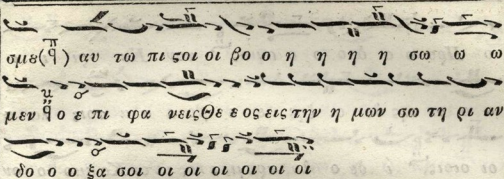 σμε(π̅ q̈) αυ τω πι ςοι οι βο ο η η η η σω ω ω
μεν q̈ ο ε πι φα νειςΘε ε ος εις την η μων σω τη ρι αν
δο ο ο ξα σοι οι οι οι οι οι οι